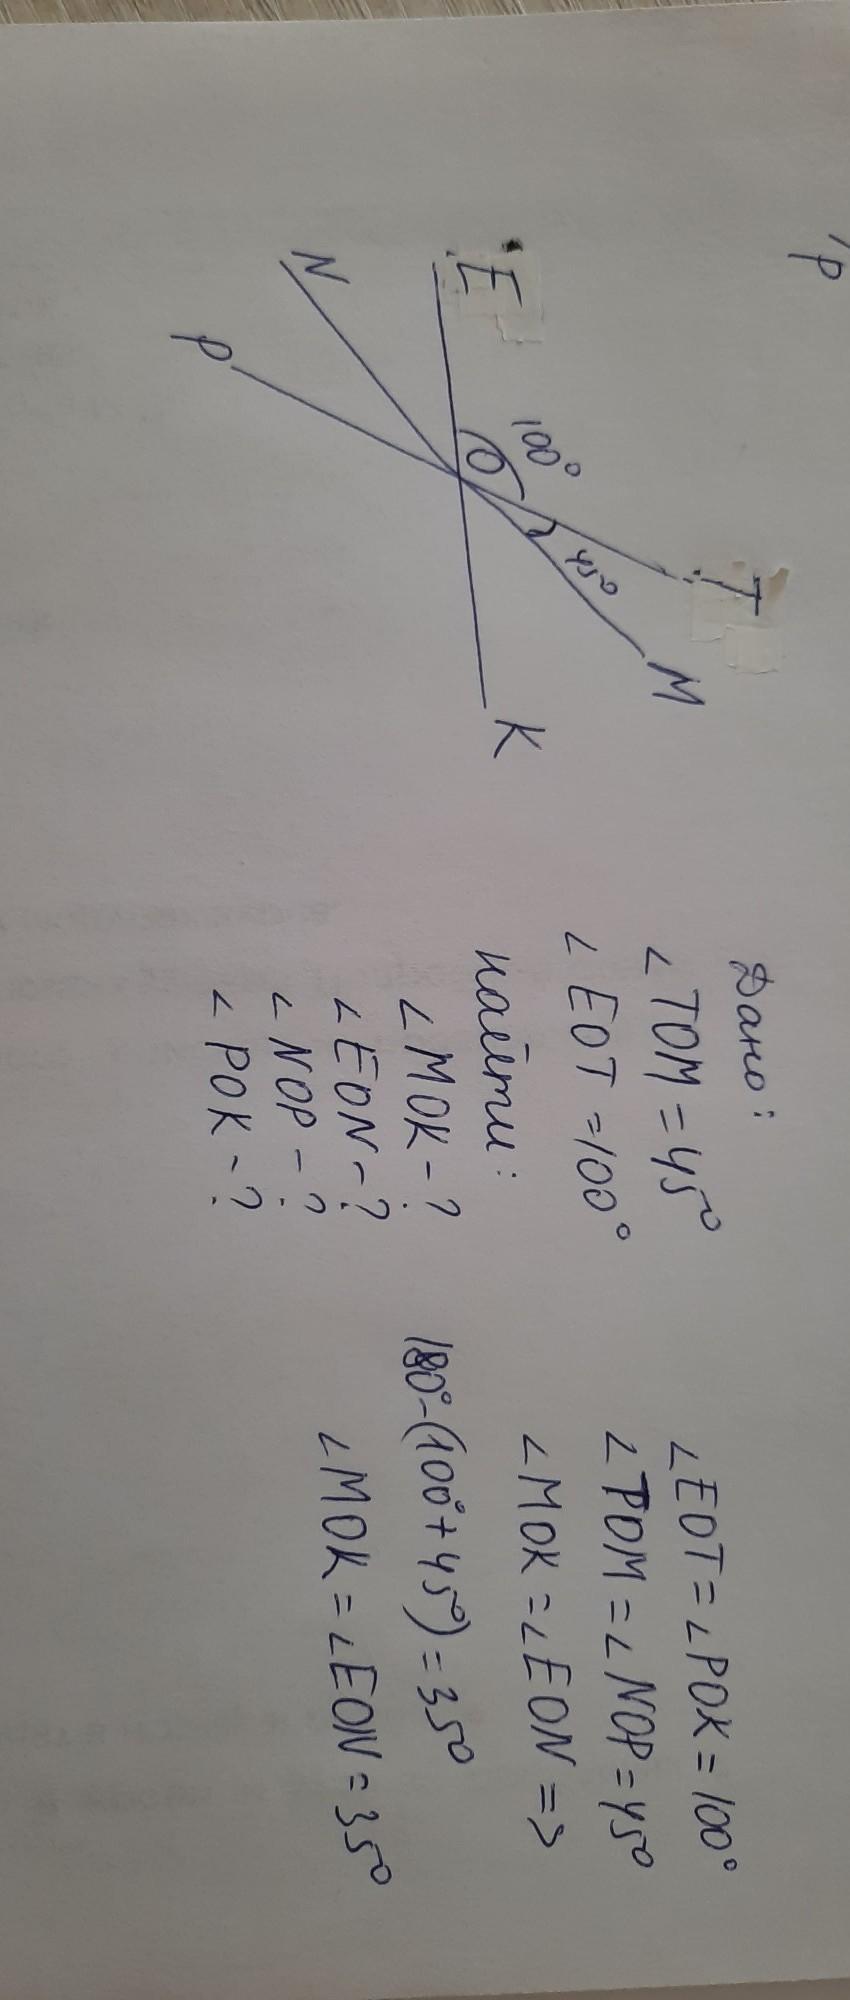 'P
E
T
100°
45°
M
O
N
K
P
Дано:
∠TOM = 45°
∠EOT = 100°
найти:
∠MOK - ?
∠EON - ?
∠NOP - ?
∠POK - ?
∠EOT = ∠POK = 100°
∠TOM = ∠NOP = 45°
∠MOK = ∠EON =>
180° - (100° + 45°) = 35°
∠MOK = ∠EON = 35°